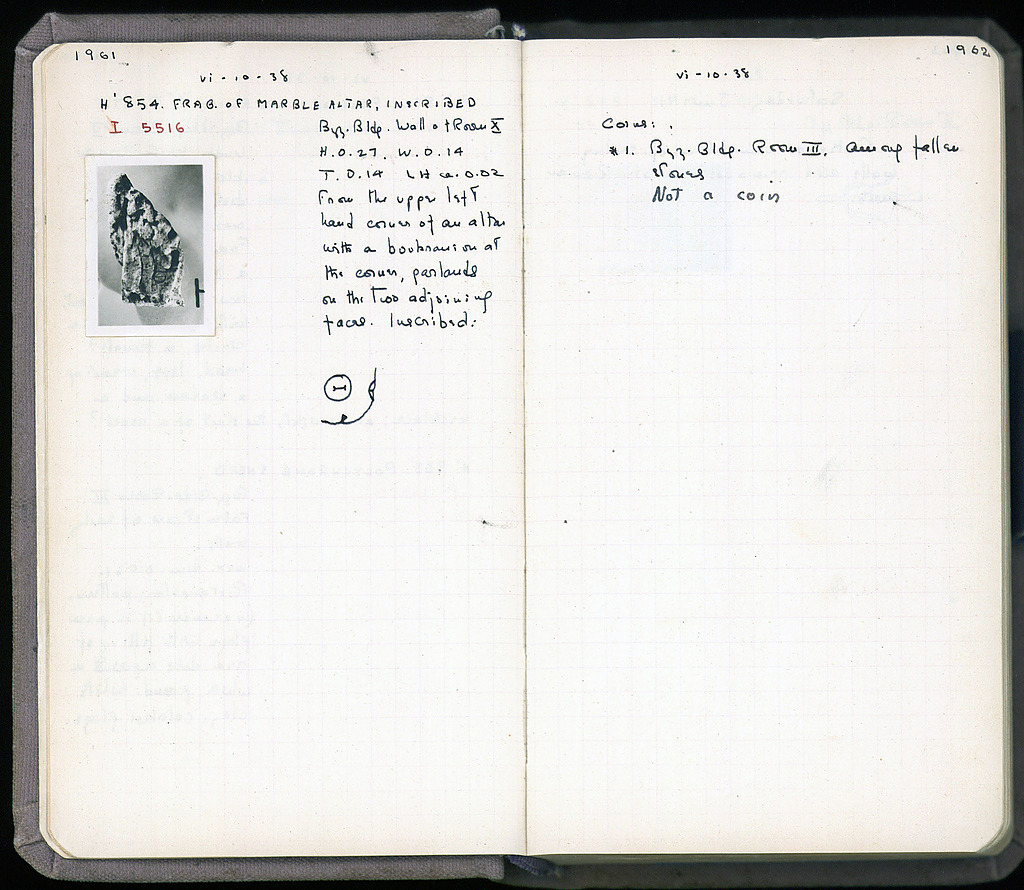 1961
vi - 10 - 38
H' 854. FRAG. OF MARBLE ALTAR, INSCRIBED
I 5516
Byz. Bldg. Wall of Room X
H. 0.27. W. 0.14
T. 0.14 LH ca. 0.02
From the upper left
hand corner of an altar
with a boukranion at
the corner, garlands
on the two adjoining
faces. Inscribed:
Θ
1962
vi - 10 - 38
Coins:
#1. Byz. Bldg. Room III, among fallen
stones
Not a coin